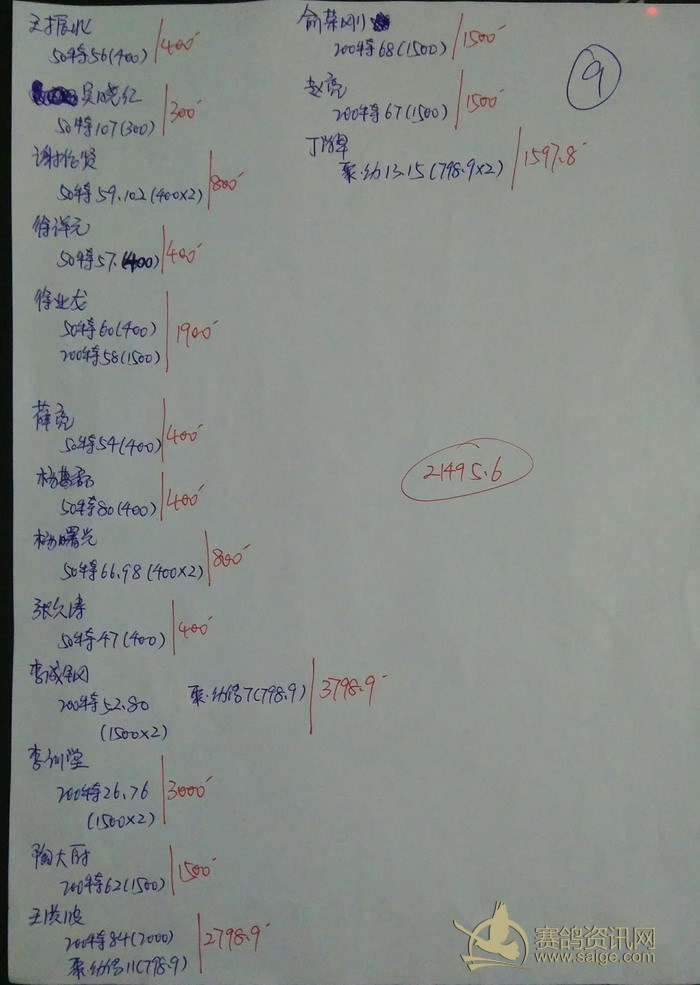 王振业
50特56(400) 400
吴晓红
50特107(300) 300
谢信贤
50特59.102(400×2) 800
徐祥元
50特57.(400) 400
徐业龙
50特60(400)
200特58(1500) 1900
薛亮
50特54(400) 400
50特80(400) 400
杨曙光
50特66.98(400×2) 800
张久涛
50特47(400) 400
李成钢
200特52.80
(1500×2)
聚.幼信7(798.9) 3798.9
李训堂
200特26.76
(1500×2) 3000
陶大尉
200特62(1500) 1500
王洪波
200特84(2000)
聚.幼信11(798.9) 2798.9
俞荣刚
200特68(1500) 1500
赵亮
200特67(1500) 1500
聚.幼13.15(798.9×2) 1597.8
9
21495.6
赛鸽资讯网
www.saige.com